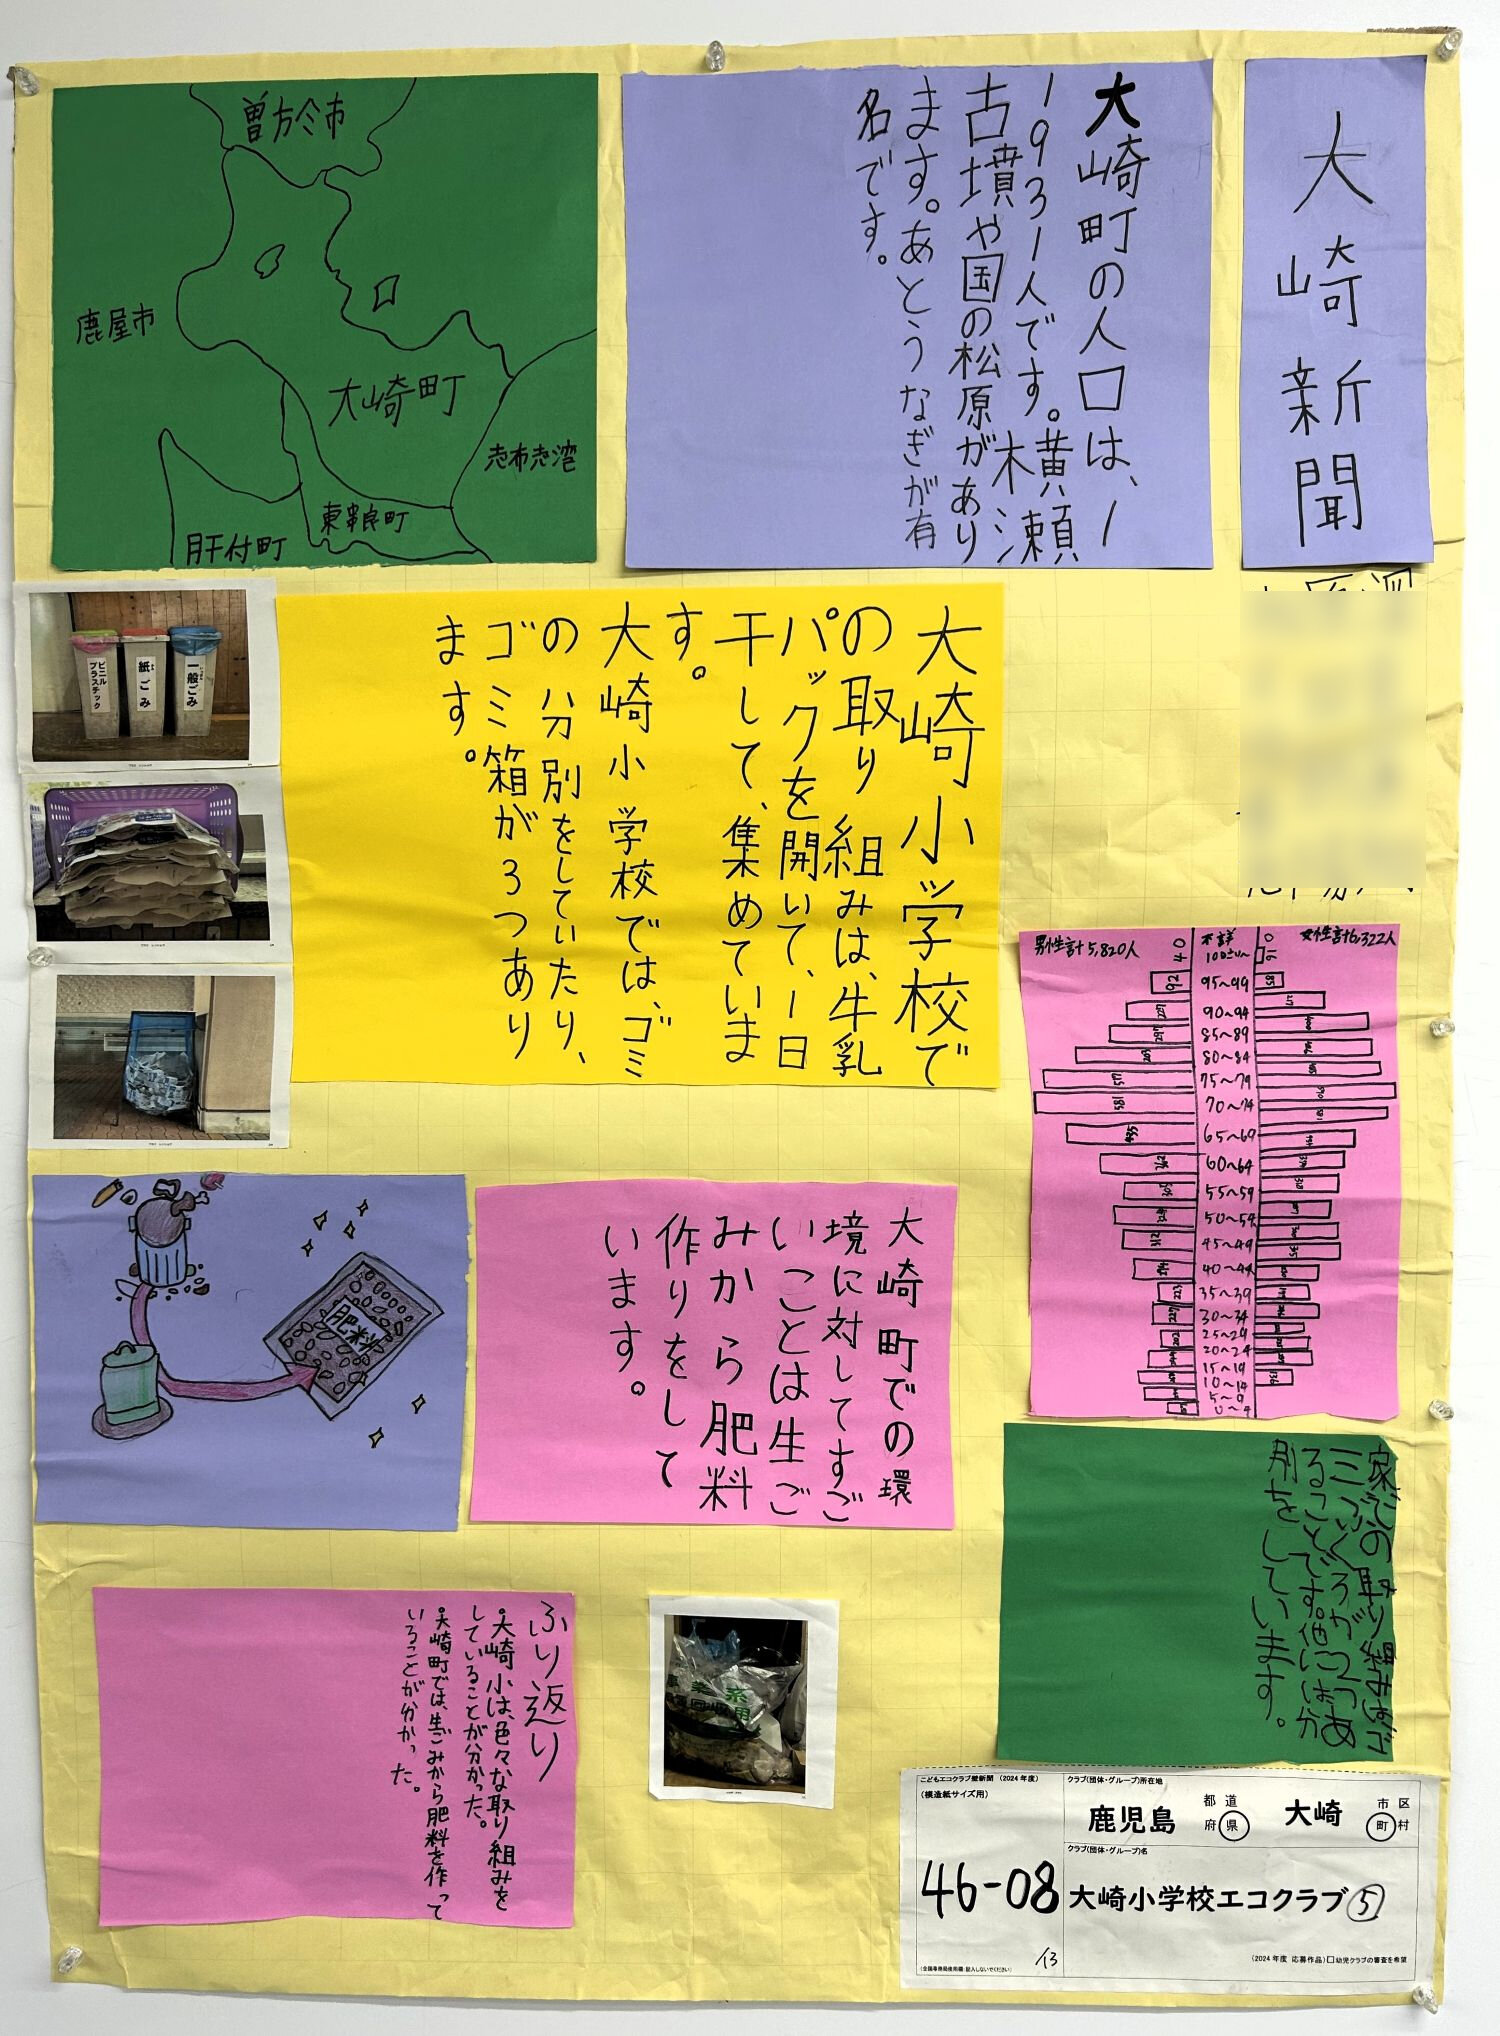 大崎新聞
大崎町の人口は、1
1931人です。横瀬
古墳や国の松原があり
ます。あとうなぎが有
名です。
曽於市
鹿屋市
大崎町
志布志湾
東串良町
肝付町
大崎小学校で
の取り組みは、牛乳
パックを開いて、1日
干して、集めていま
す。
大崎小学校では、ゴミ
の分別をしていたり、
ゴミ箱が3つあり
ます。
ビニル
プラスチック
紙ごみ
一般ごみ
男性計5,820人
不詳
女性計6,322人
0
0
4
100さい〜
16
92
95〜99
90〜94
85〜89
80〜84
75〜79
581
70〜74
65〜69
60〜64
55〜59
50〜54
45〜49
40〜44
223
35〜39
30〜34
25〜29
20〜24
15〜19
136
10〜14
5〜9
0〜4
大崎町での環
境に対してすご
いことは生ご
みから肥料
作りをして
います。
肥料
家での取り組みはゴ
ミぶくろが二つあ
ることです。他には分
別をしています。
ふり返り
・大崎小は、色々な取り組みを
していることが分かった。
・大崎町では、生ごみから肥料を作って
いることが分かった。
こどもエコクラブ壁新聞 (2024年度)
(模造紙サイズ用)
46-08
13
(全国事務局使用欄:記入しないでください)
クラブ(団体・グループ)所在地
鹿児島 都道府県 大崎 市区町村
クラブ(団体・グループ)名
大崎小学校エコクラブ⑤
(2024年度 応募作品)□幼児クラブの審査を希望